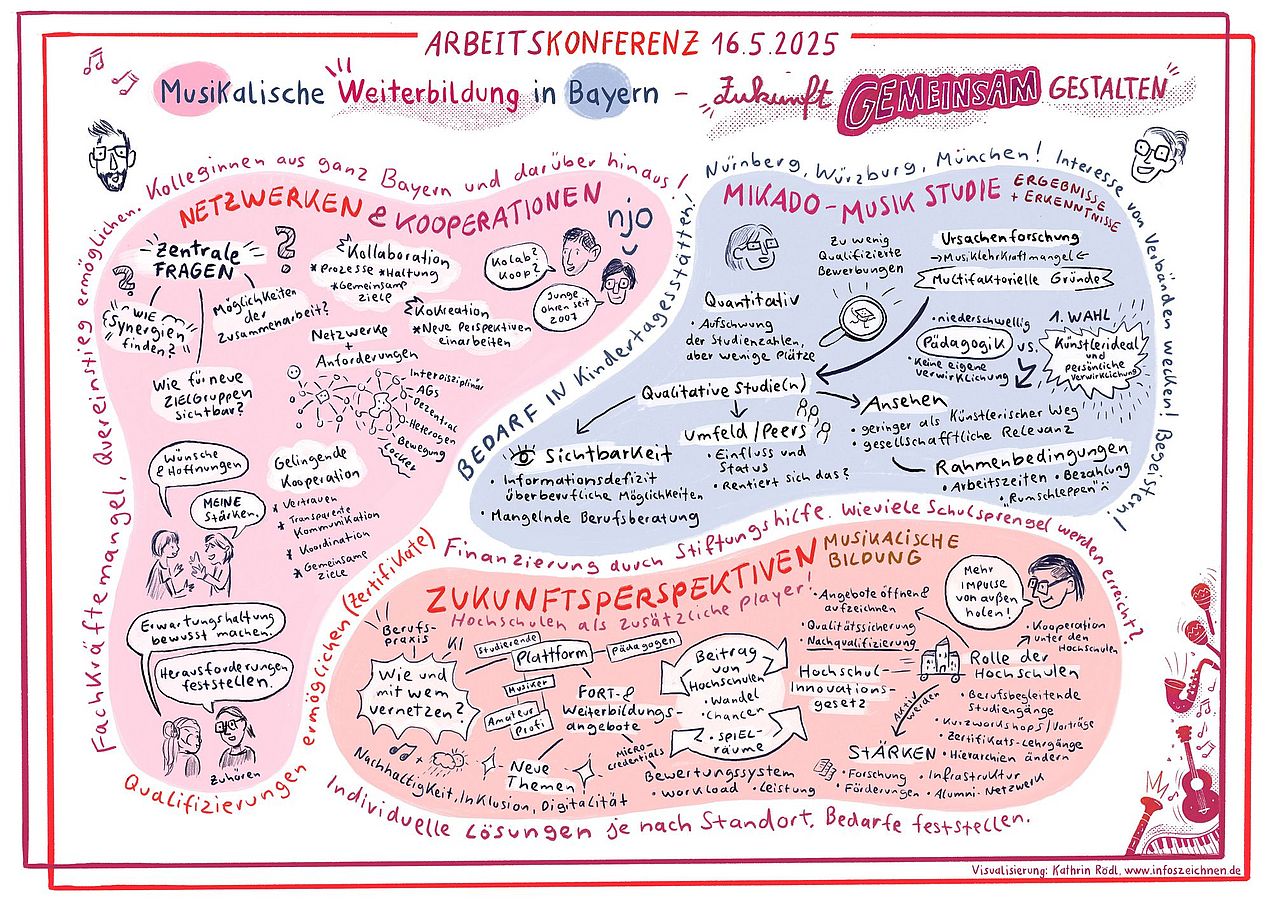 ARBEITSKONFERENZ 16.5.2025
Musikalische Weiterbildung in Bayern - Zukunft GEMEINSAM GESTALTEN
Fachkräftemangel, Quereinstieg ermöglichen. Kolleginnen aus ganz Bayern und darüber hinaus!
NETZWERKEN & KOOPERATIONEN
njo
Zentrale
FRAGEN
?
?
WIE
Synergien
finden?
Möglichkeiten
der
Zusammenarbeit?
Wie für neue
ZIELGRUPPEN
sichtbar?
Kollaboration
* Prozesse * Haltung
* Gemeinsame
Ziele
KoKreation
* Neue Perspektiven
einarbeiten
Kolab?
Koop?
Junge
Ohren seit
2007
Netzwerke
+
Anforderungen
Interdisziplinär
AGs
Dezentral
Heterogen
Bewegung
Locker
Wünsche
& Hoffnungen
MEINE
Stärken.
Gelingende
Kooperation
* Vertrauen
* Transparente
Kommunikation
* Koordination
* Gemeinsame
Ziele
Erwartungshaltung
bewusst machen.
Herausforderungen
feststellen.
Zuhören
Qualifizierungen ermöglichen (Zertifikate)
BEDARF IN Kindertagesstätten!
Nürnberg, Würzburg, München! Interesse von Verbänden wecken! Begeistern!
MIKADO-MUSIK STUDIE
ERGEBNISSE
+ ERKENNTNISSE
Zu wenig
Qualifizierte
Bewerbungen
Ursachenforschung
→ Musiklehrkraftmangel ←
Multifaktorielle Gründe
Quantitativ
• Aufschwung
der Studienzahlen,
aber wenige Plätze
• niederschwellig
Pädagogik
• Keine eigene
Verwirklichung
vs.
1. WAHL
Künstlerideal
und
persönliche
Verwirklichung
Qualitative Studie(n)
Sichtbarkeit
• Informationsdefizit
über berufliche Möglichkeiten
• Mangelnde Berufsberatung
Umfeld/Peers
• Einfluss und
Status
• Rentiert sich das?
Ansehen
• geringer als Künstlerischer Weg
• gesellschafftliche Relevanz
Rahmenbedingungen
• Arbeitszeiten • Bezahlung
• "Rumschleppen"
Finanzierung durch Stiftungshilfe. Wieviele Schulsprengel werden erreicht?
ZUKUNFTSPERSPEKTIVEN
MUSIKALISCHE
BILDUNG
Hochschulen als zusätzliche Player!
Berufs-
praxis
KI
Wie und
mit wem
vernetzen?
Studierende
Plattform
Pädagogen
Musiker
Amateur
Profi
FORT- &
Weiterbildungs-
angebote
Beitrag
von
Hochschulen
• Wandel
• Chancen
• SPIEL-
RÄUME
• Angebote öffnen &
aufzeichnen
• Qualitätssicherung
• Nachqualifizierung
Hochschul-
Innovations-
gesetz
Mehr
IMPULSE
von außen
holen!
• Kooperation
unter den
Hochschulen
Rolle der
Hochschulen
• Berufsbegleitende
Studiengänge
• Kurzworkshops/Vorträge
• Zertifikats-Lehrgänge
• Hierarchien ändern
Aktiv
werden
STÄRKEN
• Forschung
• Förderungen
• Infrastruktur
• Alumni-Netzwerk
Neue
Themen
Nachhaltigkeit, Inklusion, Digitalität
MICRO-
credentials
Bewertungssystem
• Workload • Leistung
Individuelle Lösungen je nach Standort. Bedarfe feststellen.
Visualisierung: Kathrin Rödl, www.infoszeichnen.de